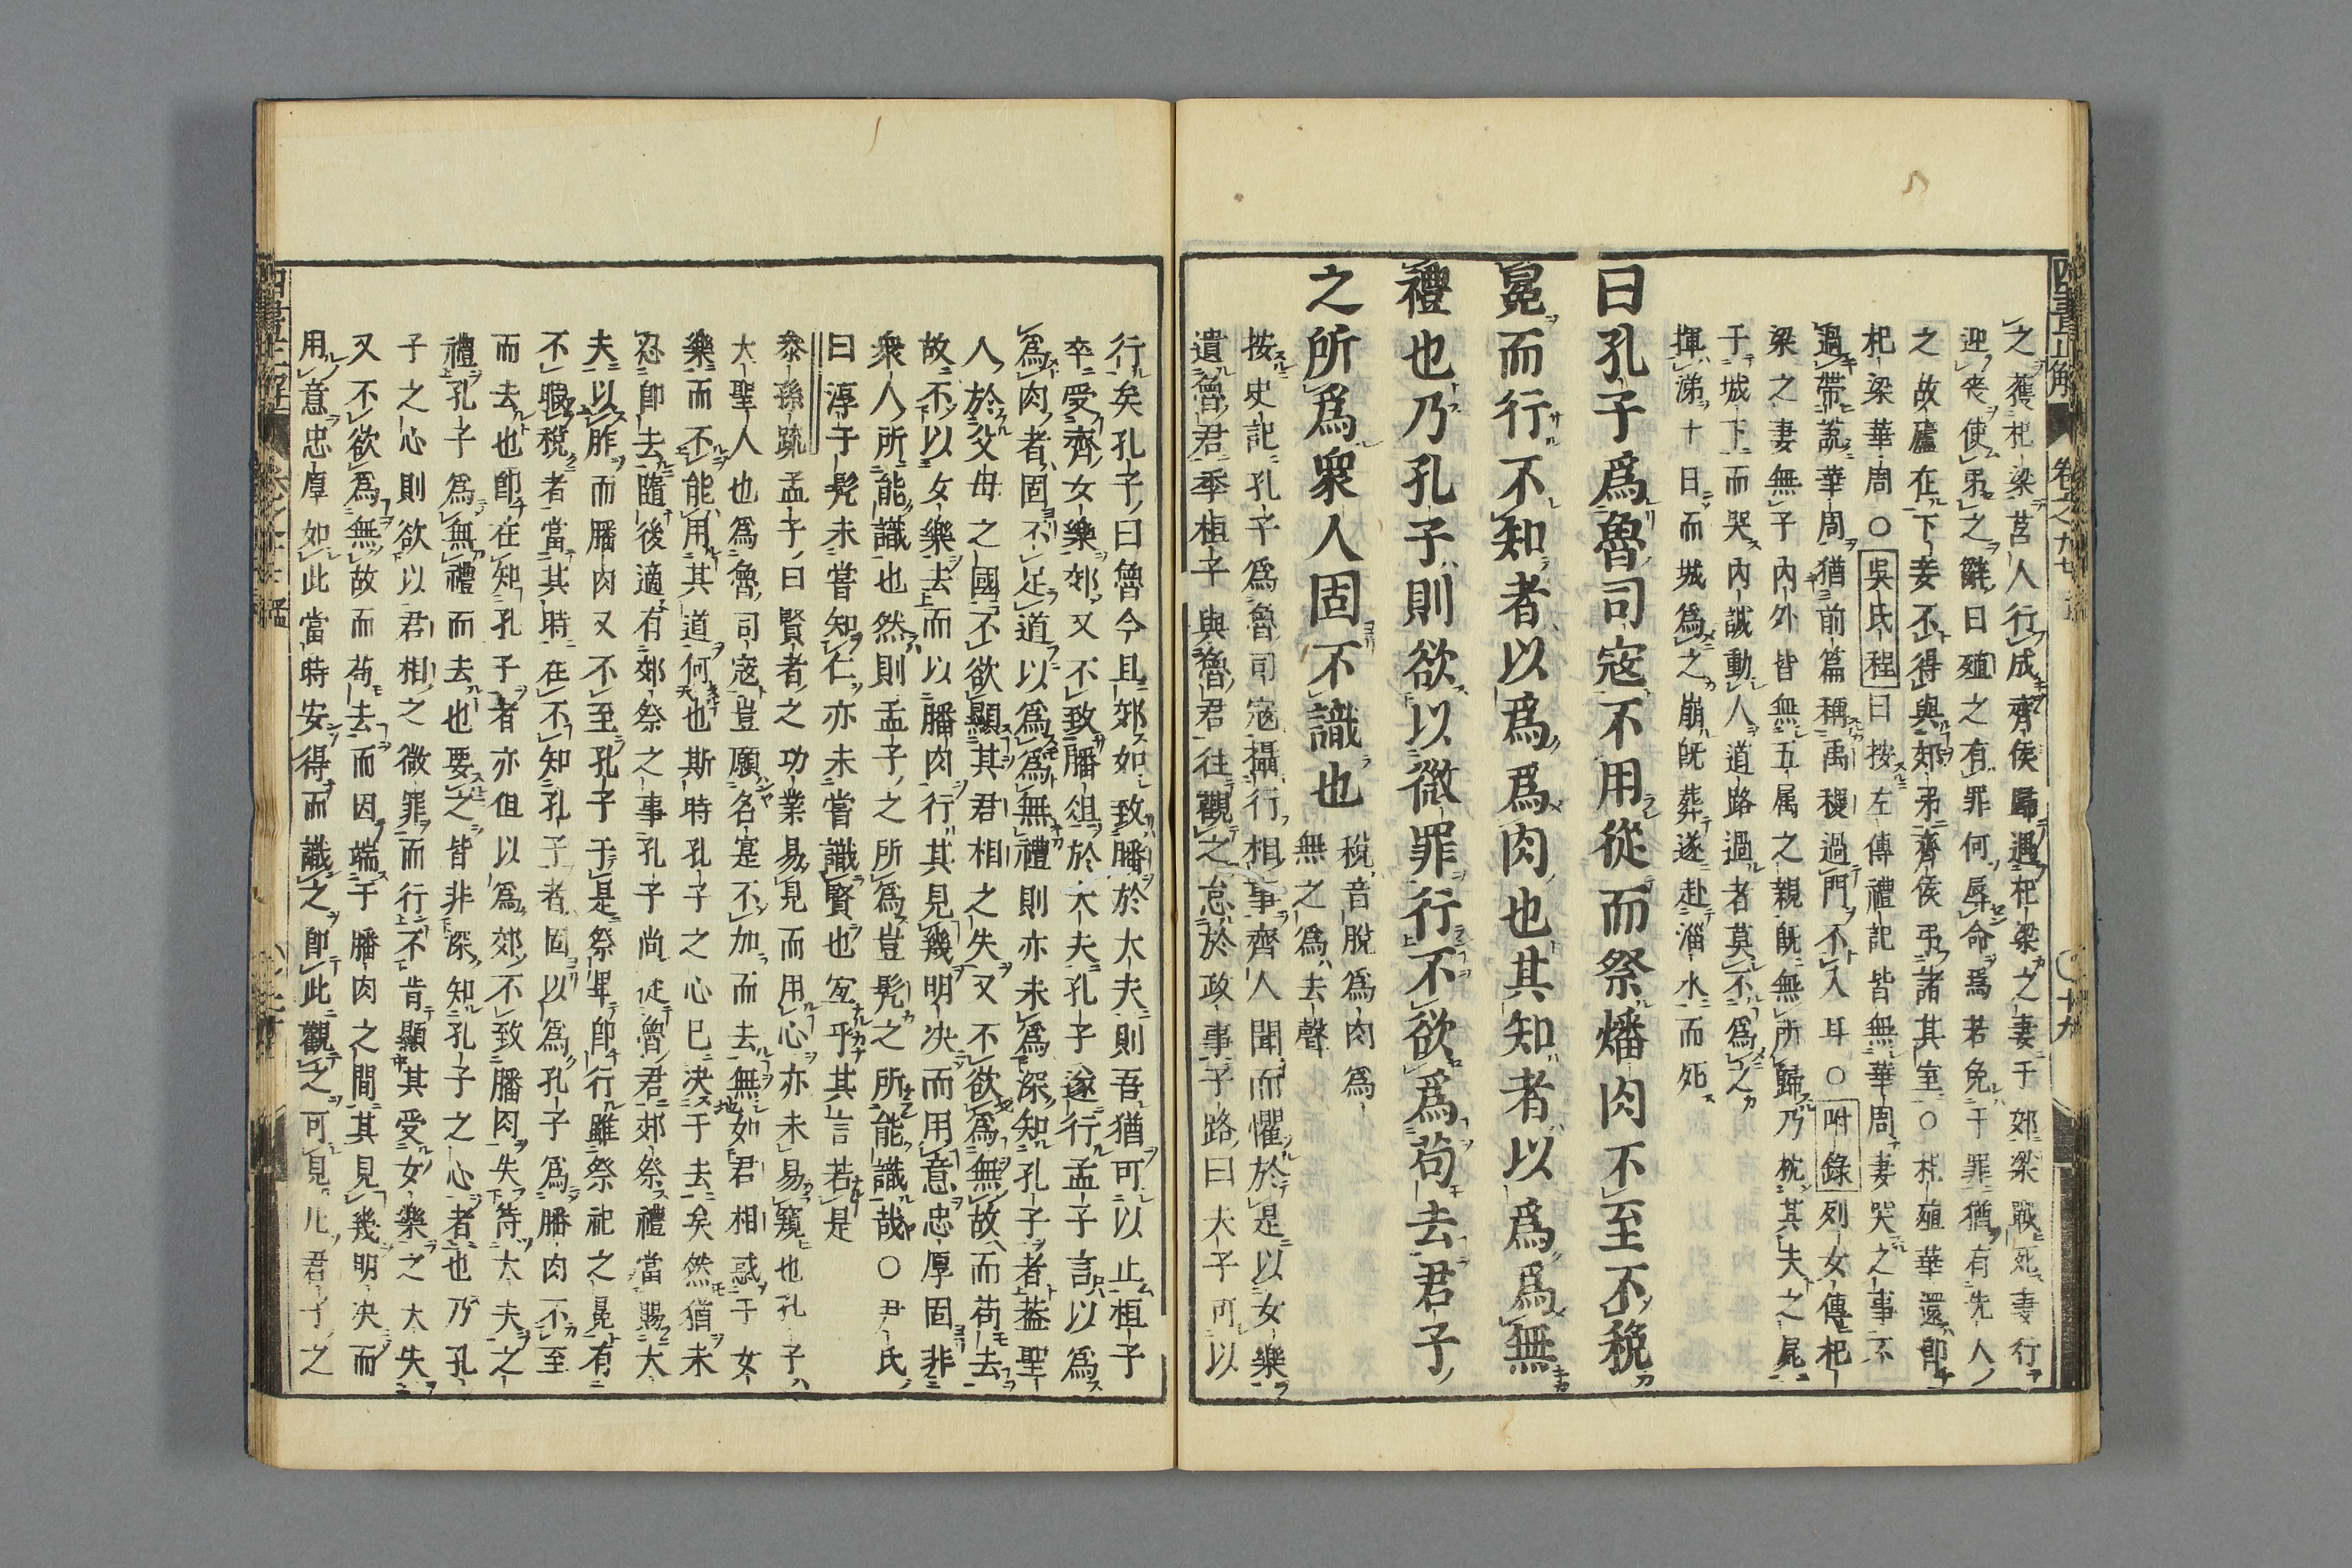 之獲杞梁莒人行成齊侯歸遇杞梁之妻于郊梁戰死妻行
迎喪使弔之辭曰殖之有罪何辱命焉若免于罪猶有先人
之故廬在下妾不得與郊弔齊侯弔諸其室○杞殖華還卽
杞梁華周○吳氏程曰按左傳禮記皆無華周妻哭之事不
過帶說華周猶前篇稱禹稷過門不入耳○附錄列女傳杞
梁之妻無子內外皆無五属之親旣無所歸乃枕其夫之屍
于城下而哭內諴動人道路過者莫不爲之
揮涕十日而城爲之崩旣葬遂赴淄水而死
曰孔子爲魯司寇不用從而祭燔肉不至不稅
冕而行不知者以爲爲肉也其知者以爲爲無
禮也乃孔子則欲以微罪行不欲爲苟去君子
之所爲衆人固不識也
稅音脫爲肉爲
無之爲去聲
按史記孔子爲魯司寇攝行相事齊人聞而懼於是以女樂
遺魯君季桓子與魯君往觀之怠於政事子路曰夫子可以
行矣孔子曰魯今且郊如致膰於大夫則吾猶可以止桓子
卒受齊女樂郊又不致膰俎於大夫孔子遂行孟子言以爲
爲肉者固不足道以爲爲無禮則亦未爲深知孔子者蓋聖
人於父母之國不欲顯其君相之失又不欲爲無故而苟去
故不以女樂去而以膰肉行其見幾明決而用意忠厚固非
衆人所能識也然則孟子之所爲豈髡之所能識哉○尹氏
曰淳于髡未嘗知仁亦未嘗識賢也宜乎其言若是
泰孫疏孟子曰賢者之功業易見而用心亦未易窺也孔子
大聖人也爲魯司寇豈願名寔不加而去無如君相惑于女
樂而不能用其道何也斯時孔子之心已決于去矣然猶未
忍卽去隨後適有郊祭之事孔子尚從魯君郊祭禮當賜大
夫以胙而膰肉又不至孔子于是祭畢卽行雖祭祀之冕有
不暇稅者當其時在不知孔子者固以爲孔子爲膰肉不至
而去也卽在知孔子者亦但以爲郊不致膰肉失待大夫之
禮孔子爲無禮而去也要之皆非深知孔子之心者也乃孔
子之心則欲以君相之微罪而行不肯顯其受女樂之大失
又不欲爲無故而苟去而因端于膰肉之間其見幾明決而
用意忠厚如此當時安得而識之卽此觀之可見凡君子之